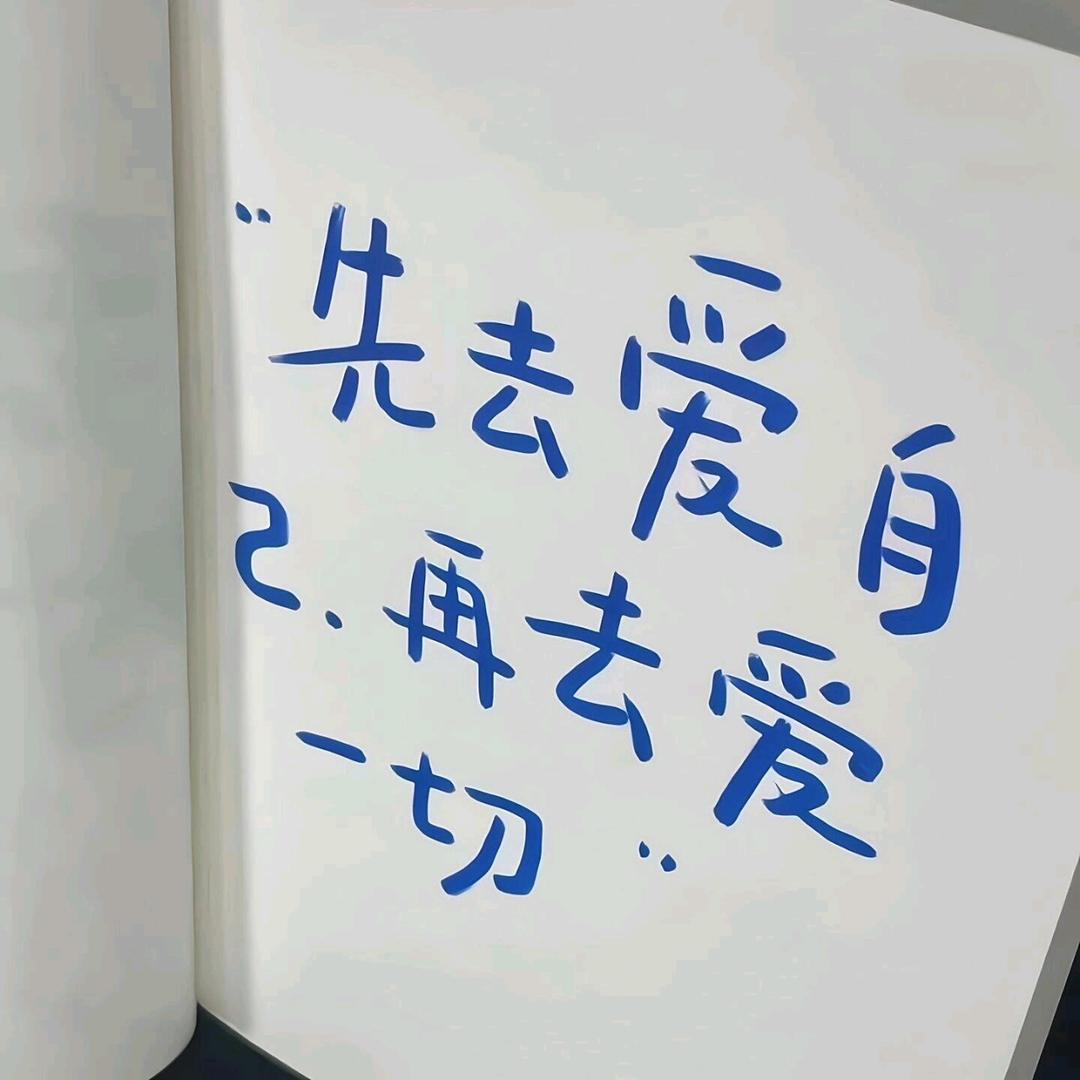 “先去爱自
己.再去爱
一切”